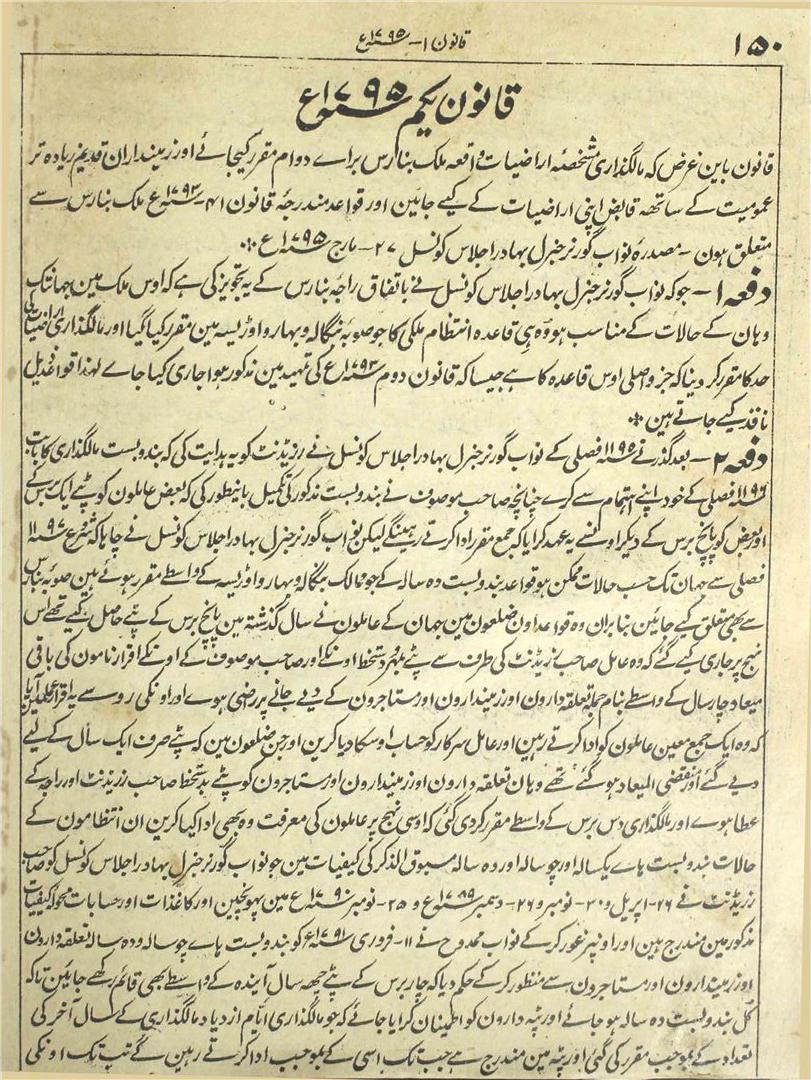 ۱۵۰
قانون ۱- ۱۷۹۵ع
قانون یکم ۱۷۹۵ع
قانون باین غرض کہ مالگذاری مشخصہ اراضیات واقعہ ملک بنارس براے دوام مقرر کیجائے اور زمینداران قدیم زیادہ تر
عمومیت کے ساتھہ قابض اپنی اراضیات کے کیے جائین اور قواعد مندرجۂ قانون ۴۱- ۱۷۹۳ع ملک بنارس سے
متعلق ہون - مصدرۂ نواب گورنر جنرل بہادر اجلاس کونسل ۲۷- مارچ ۱۷۹۵ع
دفعہ ۱- جوکہ نواب گورنر جنرل بہادر اجلاس کونسل نے باتفاق راجہ بنارس کے یہ تجویز کی ہے کہ اوس ملک مین جہانتک
وہان کے حالات کے مناسب ہو وہ ہی قاعدہ انتظام ملکی کا جو صوبہ بنگالہ و بہار و اوڑیسہ مین مقرر کیا گیا اور مالگذاری اراضیات کی
حد کا مقرر کر دینا کہ جزو اصلی اوس قاعدہ کا ہے جیسا کہ قانون دوم ۱۷۹۳ع کی تمہید مین مذکور ہوا جاری کیا جاے لہذا قواعد ذیل
نافذ کیے جاتے ہین
دفعہ ۲- بعد گذرنے ۱۱۹۵ فصلی کے نواب گورنر جنرل بہادر اجلاس کونسل نے رزیڈنٹ کو یہ ہدایت کی کہ بندوبست مالگذاری کا بابت
۱۱۹۶ فصلی کے خود اپنے اہتمام سے کرے چنانچہ صاحب موصوف نے بندوبست مذکور کی تکمیل باینطور کی کہ بعض عاملون کو پٹے ایک برس کے
اور بعض کو پانچ برس کے دیکر اونسے یہ عہد کرایا کہ جمع مقررہ ادا کرتے رہینگے لیکن نواب گورنر جنرل بہادر اجلاس کونسل نے چاہا کہ شروع ۱۱۹۷
فصلی سے جہان تک حسب حالات ممکن ہو قواعد بندوبست دہ سالہ کے جو ممالک بنگالہ و بہار و اوڑیسہ کے واسطے مقرر ہوئے ہین صوبہ بنارس
سے بھی متعلق کیے جائین بنابران وہ قواعد اون ضلعون مین جہان کے عاملون نے سال گذشتہ مین پانچ برس کے پٹے حاصل کیے تھے اس
نہج پر جاری کیے گئے کہ وہ عامل صاحب رزیڈنٹ کی طرف سے پٹے بمہر و دستخط اونکے اور صاحب موصوف کے اونکے اقرارنامون کی باقی
میعاد چار سال کے واسطے بنام جملہ تعلقہ دارون اور زمیندارون اور مستاجرون کے دیے جانے پر رضی ہوے اور اونکی رو سے یہ اقرار
کہ وہ ایک جمع معین عاملون کو ادا کرتے رہین اور عامل سرکار کو حساب اوسکا دیا کرین اور جن ضلعون مین کہ پٹے صرف ایک سال کے لیے
دیے گئے اور منقضی المیعاد ہو گئے تھے وہان تعلقہ دارون اور زمیندارون اور مستاجرون کو پٹے بدستخط صاحب رزیڈنٹ اور راجہ کے
عطا ہوے اور مالگذاری دس برس کے واسطے مقرر کردی گئی کہ اوسی نہج پر عاملون کی معرفت وہ بھی ادا کیا کرین ان انتظامون کے
حالات بندوبست ہاے یکسالہ اور چوسالہ اور دہ سالہ مسبوق الذکر کی کیفیات مین جو نواب گورنر جنرل بہادر اجلاس کونسل کو صاحب
رزیڈنٹ نے ۲۶- اپریل و ۲۰- نومبر و ۲۶- دسمبر ۱۷۸۹ع و ۲۵- نومبر ۱۷۹۰ع مین پہونچین اور کاغذات اور حسابات محولہ کیفیات
مذکور مین مندرج ہین اور اونپر غور کر کے نواب ممدوح نے ۱۱- فروری ۱۷۹۱ع کو بندوبست ہاے چوسالہ و دہ سالہ تعلقہ دارون
اور زمیندارون اور مستاجرون سے منظور کر کے حکم دیا کہ چار برس کے پٹے چھہ سال آیندہ کے واسطے بھی قائم رکھے جائین تاکہ
کل بندوبست دہ سالہ ہو جائے اور پٹہ دارون کو اطمینان کرایا جائے کہ جو مالگذاری ایام ازدیاد مالگذاری کے سال آخر کی
تعداد کے بموجب مقرر کی گئی اور پٹہ مین مندرج ہے جب تک اسی کے بموجب ادا کرتے رہین گے تب تک اونکی